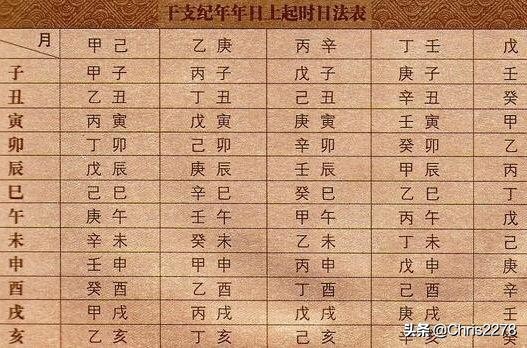 干支纪年年日上起时日法表
月 甲己 乙庚 丙辛 丁壬 戊
子 甲子 丙子 戊子 庚子 壬
丑 乙丑 丁丑 己丑 辛丑 癸
寅 丙寅 戊寅 庚寅 壬寅 甲
卯 丁卯 己卯 辛卯 癸卯 乙
辰 戊辰 庚辰 壬辰 甲辰 丙
巳 己巳 辛巳 癸巳 乙巳 丁
午 庚午 壬午 甲午 丙午 戊
未 辛未 癸未 乙未 丁未 己
申 壬申 甲申 丙申 戊申 庚
酉 癸酉 乙酉 丁酉 己酉 辛
戌 甲戌 丙戌 戊戌 庚戌 壬
亥 乙亥 丁亥 己亥 辛亥
头条 @Chris2278